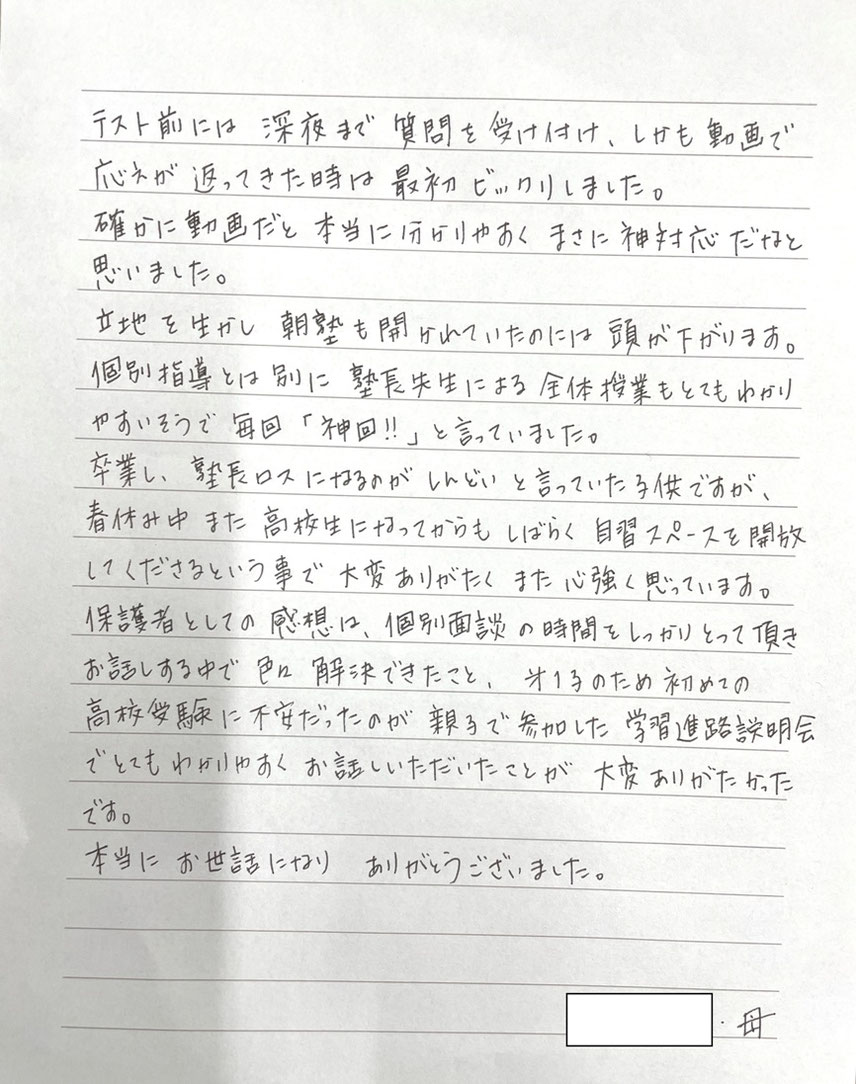 テスト前には 深夜まで 質問を受け付け、しかも動画で
応えが 返ってきた時は 最初 ビックリしました。
確かに動画だと 本当に分かりやすく まさに神対応だなと
思いました。
立地を生かし 朝塾も開かれていたのには 頭が下がります。
個別指導とは別に 塾長先生による 全体授業もとてもわかり
やすいそうで 毎回「神回!!」と言っていました。
卒業し、塾長ロスになるのが しんどいと言っていた子供ですが、
春休み中 また 高校生になってからも しばらく 自習スペースを開放
してくださるという事で 大変ありがたく また 心強く思っています。
保護者としての 感想は、個別面談の時間をしっかりとって頂き
お話しする中で 色々 解決できたこと、 第1子のため 初めての
高校受験に不安だったのが 親子で参加した 学習進路説明会
でとてもわかりやすく お話しいただいたことが 大変ありがたかった
です。
本当に お世話になり ありがとうございました。
・母